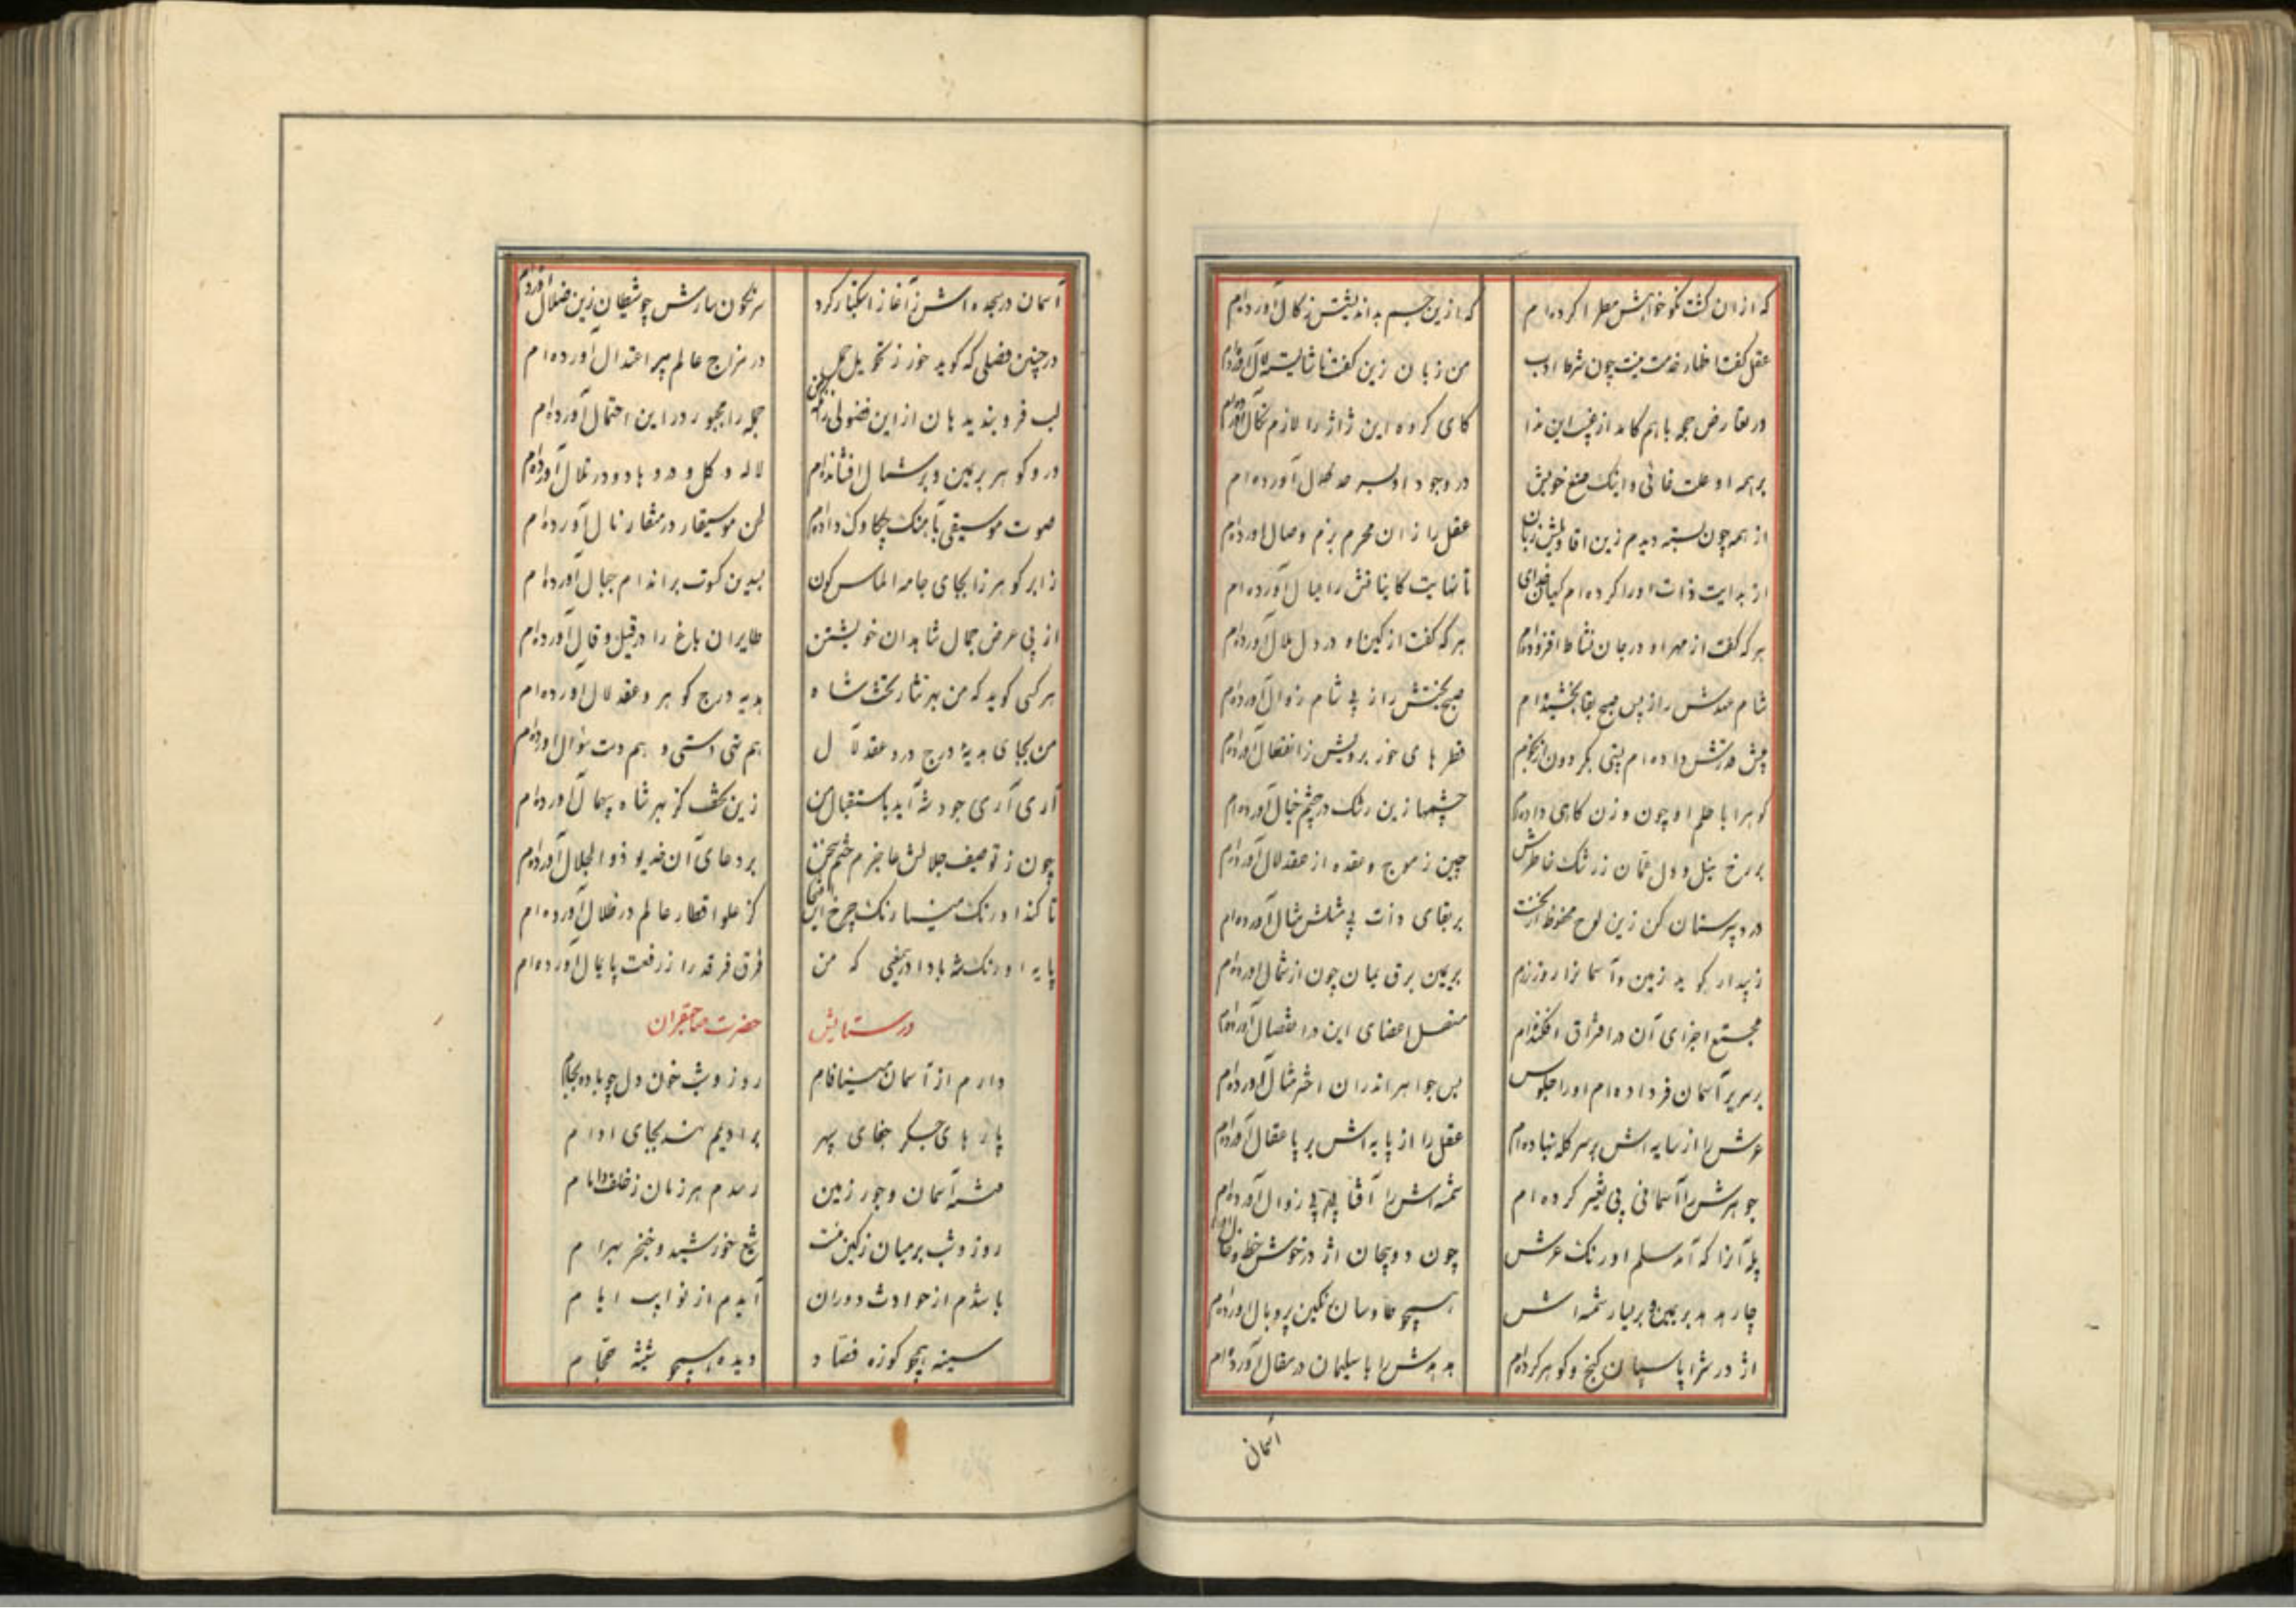 که از آن گشت نکو خواهش مطرا کرده‌ام که ازین جسم بداندیشش زکال آورده‌ام
عقل گفت اظهار خدمت نیست چون شرط ادب من زبان زین گفت ناشایسته لال آورده‌ام
در تعارض جمله باهم کامد از غیب این ندا کای گروه این ژاژ را لازم نکال آورده‌ام
بر همه او علت غائی و اینک صنع خویش در وجود او بسر حد کمال آورده‌ام
از همه چون بسته دیدم زین اقاویلش زبان عقل را زان محرم بزم وصال آورده‌ام
از بدایت ذات او را کرده‌ام کیهان خدای تا نهایت کایناتش را عیال آورده‌ام
هر که گفت از مهر او در جان نشاط افزوده‌ام هر که گفت از کین او در دل ملال آورده‌ام
شام عهدش را ز پس صبح بقا بخشیده‌ام صبح بختش را ز پی شام زوال آورده‌ام
پیش قدرش داده‌ام پستی بگردون از نجوم قطرهای خوی برویش ز انفعال آورده‌ام
کوه را با حلم او چون وزن کاهی داده‌ام چشمها زین رشک در چشم خیال آورده‌ام
بر رخ نیل و دل عمان ز رشک خاطرش چین ز موج و عقده از عقد لال آورده‌ام
در دبیرستان کن زین لوح محفوظ از نخست بر بقای ذات بی مثلش مثال آورده‌ام
ز پی او گوید زمین و آسمان را روز رزم بر یمین برق یمان چون از شمال آورده‌ام
مجتمع اجزای آن در افتراق افکنده‌ام متصل اعضای این در انفصال آورده‌ام
بر سریر آسمان فر داده‌ام او را جلوس بس جواهر اندران اختر مثال آورده‌ام
عرش را از سایه‌اش بر سر کله بنهاده‌ام عقل را از پایه‌اش بر پا عقال آورده‌ام
جوهرش را آسمانی بی تغیر کرده‌ام شمسه‌اش را آفتابی بی زوال آورده‌ام
پله آنرا که آمد سلم اورنگ عرش چون دو پیچان اژدر خوش خط و خال آورده‌ام
چار هدهد بر یمین و بر یسار شمسه‌اش همچو طاوسان رنگین پر و بال آورده‌ام
اژدرش را پاسبان گنج و گوهر کرده‌ام هدهدش را با سلیمان در مقال آورده‌ام
آسمان
آسمان در سجده‌اش ز آغاز استکبار کرد سرنگون سارش چو شیطان زین ضلال آورده‌ام
در چنین فصلی که گوید خور ز تحویل حمل در مزاج عالم پیر اعتدال آورده‌ام
لب فرو بندید هان از این فضولی ز آنکه من جمله را مجبور در این احتمال آورده‌ام
در و گوهر بر یمین و بر شمال افشانده‌ام لاله و گل در وهاد و در تلال آورده‌ام
صوت موسیقی بآهنگ چکاوک داده‌ام لحن موسیقار در منقار نال آورده‌ام
ز ابر گوهر زا بجای جامه الماس گون بسدین کسوت بر اندام جبال آورده‌ام
از پی عرض جمال شاهدان خویشتن طایران باغ را در قیل و قال آورده‌ام
هر کسی گوید که من بهر نثار تخت شاه هدیه درج گوهر و عقد لال آورده‌ام
من بجای هدیهٔ درج در و عقد لآل هم تهی دستی و هم دست سؤال آورده‌ام
آری آری جود شه آید باستقبال من زین تحف کز بهر شاه بیهمال آورده‌ام
چون ز توصیف جلالش عاجزم ختم سخن بر دعای آن خدیو ذو الجلال آورده‌ام
تا کند اورنگ مینا رنگ چرخ این افتخار کز علو اقطار عالم در ظلال آورده‌ام
پایه اورنگ شه بادا در معنی که من فرق فرقد را ز رفعت پایمال آورده‌ام
در ستایش حضرت صاحبقران
دارم از آسمان مینا فام روز و شب خون دل چو باده بجام
پارهای جگر جفای سپهر بر ادیمم نهد بجای ادام
فتنه آسمان و جور زمین رسدم هر زمان ز خلف و امام
روز و شب بر میان ز کین منست تیغ خورشید و خنجر بهرام
باشدم از حوادث دوران آیدم از نوایب ایام
سینه همچو کوزه فصاد دیده همچو شیشه حجام